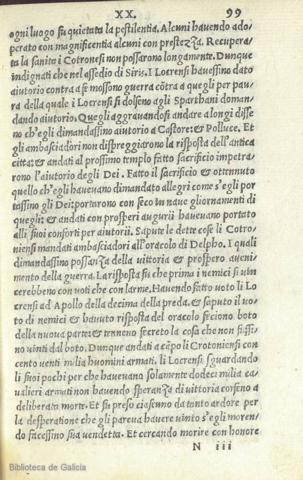 XX. 99
ogni luogo fu quietata la pestilentia. Alcuni havendo ado/
perato con magnificentia alcuni con prestezza. Recupera/
ta la sanita i Cotronesi non possarono longamente. Dunque
indignati che nel assedio di Siris. I Locrensi havessino dato
aiutorio contra a se mossono guerra cōtra a quegli per pau/
ra della quale i Locrensi si dolseno agli Sparthani doman/
dando aiutorio. Quegli aggravandosi andare a longi disse
no ch'egli dimandassino aiutorio a Castore: & Polluce. Et
gli ambasciadori non dispreggiarono la risposta dell'antica
citta: & andati al prossimo templo fatto sacrificio impetra/
rono l'aiutorio degli Dei. Fatto il sacrificio & ottennuto
quello ch'egli havevano dimandato allegri come s'egli por
tassino gli Dei: portarono con seco in nave gliornamenti di
quegli: & andati con prosperi augurii havevano portato
alli suoi conforti per aiutorii. Sapute le dette cose li Cotro/
niensi mandati ambasciadori all'oracolo di Delpho. I quali
dimandassino possanza della vittoria & prospero aveni/
mento della guerra. La risposta fu che prima i nemici si vin
cerebbeno con voti che con larme. Havendo fatto voto li Lo
crensi ad Apollo della decima della preda. & saputo il vo/
to di nemici & havuto risposta del oracolo feciono boto
della nuova parte: & tenneno secreto la cosa che non fussi/
no vinti dal boto. Dunque andati a cāpo li Crotoniensi con
cento venti milia huomini armati. li Locrensi sguardando
li suoi pochi per che havevano solamente dodeci milia ca/
valieri armati non havendo speranza di vittoria corseno a
deliberata morte. Et fu preso ciascuno da tanto ardore per
la desperatione che gli pareva havere vinto s'egli moren/
do facessino sua vendetta. Et cercando morire con honore
N iii
Biblioteca de Galicia